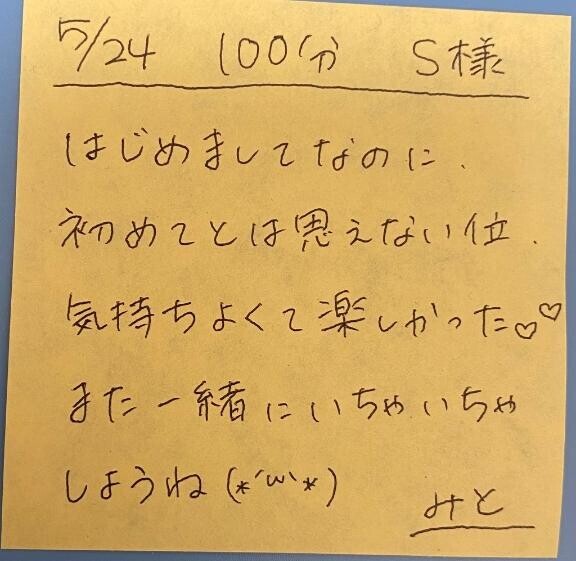 5/24 100分 S様
はじめましてなのに、
初めてとは思えない位、
気持ちよくて楽しかった♡♡
また一緒にいちゃいちゃ
しようね(*´ω`*)
みと